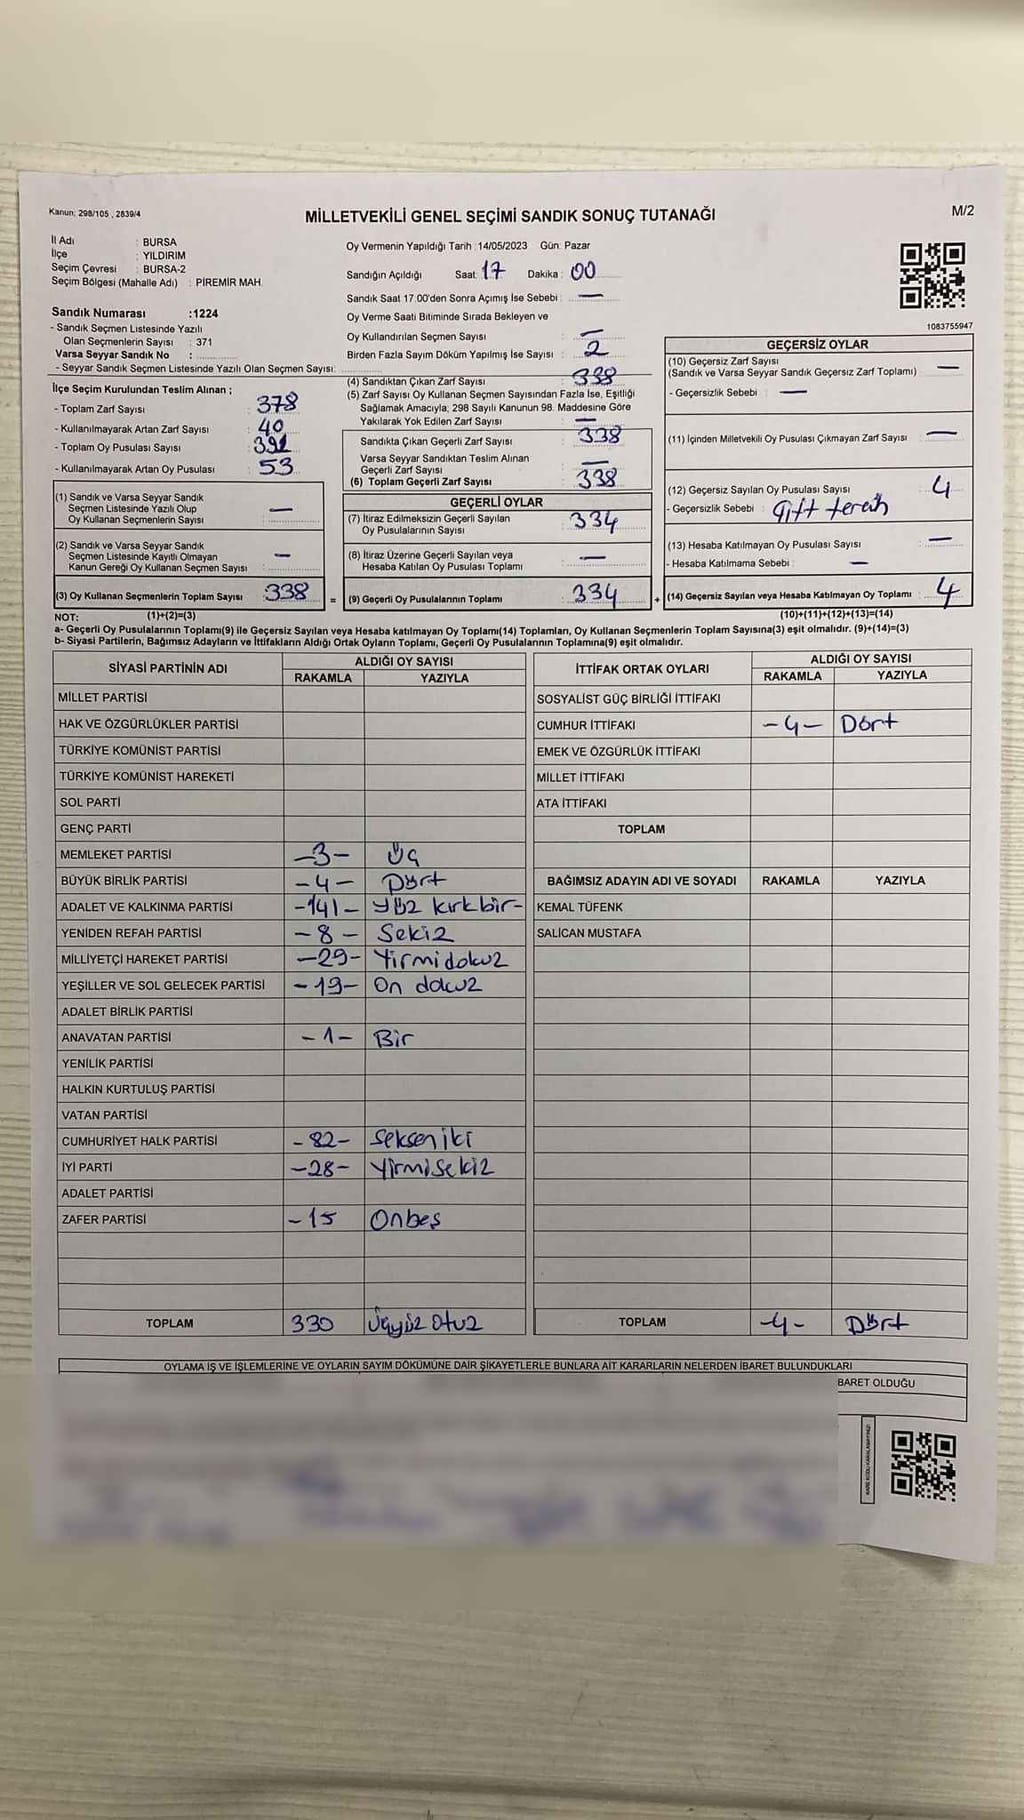 Kanun; 298/105 , 2839/4
MİLLETVEKİLİ GENEL SEÇİMİ SANDIK SONUÇ TUTANAĞI
M/2
İl Adı : BURSA
İlçe : YILDIRIM
Seçim Çevresi : BURSA-2
Seçim Bölgesi (Mahalle Adı) : PİREMİR MAH.
Sandık Numarası :1224
- Sandık Seçmen Listesinde Yazılı
Olan Seçmenlerin Sayısı : 371
Varsa Seyyar Sandık No :
- Seyyar Sandık Seçmen Listesinde Yazılı Olan Seçmen Sayısı:
Oy Vermenin Yapıldığı Tarih :14/05/2023 Gün: Pazar
Sandığın Açıldığı Saat: 17 Dakika : 00
Sandık Saat 17:00'den Sonra Açımış İse Sebebi : —
Oy Verme Saati Bitiminde Sırada Bekleyen ve
Oy Kullandırılan Seçmen Sayısı : —
Birden Fazla Sayım Döküm Yapılmış İse Sayısı : 2
1083755947
İlçe Seçim Kurulundan Teslim Alınan ;
- Toplam Zarf Sayısı : 378
- Kullanılmayarak Artan Zarf Sayısı : 40
- Toplam Oy Pusulası Sayısı : 391
- Kullanılmayarak Artan Oy Pusulası : 53
(1) Sandık ve Varsa Seyyar Sandık
Seçmen Listesinde Yazılı Olup
Oy Kullanan Seçmenlerin Sayısı : —
(2) Sandık ve Varsa Seyyar Sandık
Seçmen Listesinde Kayıtlı Olmayan
Kanun Gereği Oy Kullanan Seçmen Sayısı : —
(3) Oy Kullanan Seçmenlerin Toplam Sayısı : 338
(4) Sandıktan Çıkan Zarf Sayısı : 338
(5) Zarf Sayısı Oy Kullanan Seçmen Sayısından Fazla İse, Eşitliği
Sağlamak Amacıyla; 298 Sayılı Kanunun 98. Maddesine Göre
Yakılarak Yok Edilen Zarf Sayısı : —
Sandıkta Çıkan Geçerli Zarf Sayısı : 338
Varsa Seyyar Sandıktan Teslim Alınan
Geçerli Zarf Sayısı : —
(6) Toplam Geçerli Zarf Sayısı : 338
GEÇERLİ OYLAR
(7) İtiraz Edilmeksizin Geçerli Sayılan
Oy Pusulalarının Sayısı : 334
(8) İtiraz Üzerine Geçerli Sayılan veya
Hesaba Katılan Oy Pusulası Toplamı : —
= (9) Geçerli Oy Pusulalarının Toplamı : 334 +
GEÇERSİZ OYLAR
(10) Geçersiz Zarf Sayısı
(Sandık ve Varsa Seyyar Sandık Geçersiz Zarf Toplamı) : —
- Geçersizlik Sebebi : —
(11) İçinden Milletvekili Oy Pusulası Çıkmayan Zarf Sayısı : —
(12) Geçersiz Sayılan Oy Pusulası Sayısı : 4
- Geçersizlik Sebebi : Çift tercih
(13) Hesaba Katılmayan Oy Pusulası Sayısı : —
- Hesaba Katılmama Sebebi : —
(14) Geçersiz Sayılan veya Hesaba Katılmayan Oy Toplamı : 4
NOT: (1)+(2)=(3) (10)+(11)+(12)+(13)=(14)
a- Geçerli Oy Pusulalarının Toplamı(9) ile Geçersiz Sayılan veya Hesaba katılmayan Oy Toplamı(14) Toplamları, Oy Kullanan Seçmenlerin Toplam Sayısına(3) eşit olmalıdır. (9)+(14)=(3)
b- Siyasi Partilerin, Bağımsız Adayların ve İttifakların Aldığı Ortak Oyların Toplamı, Geçerli Oy Pusulalarının Toplamına(9) eşit olmalıdır.
SİYASİ PARTİNİN ADI ALDIĞI OY SAYISI
RAKAMLA YAZIYLA
MİLLET PARTİSİ
HAK VE ÖZGÜRLÜKLER PARTİSİ
TÜRKİYE KOMÜNİST PARTİSİ
TÜRKİYE KOMÜNİST HAREKETİ
SOL PARTİ
GENÇ PARTİ
MEMLEKET PARTİSİ -3- Üç
BÜYÜK BİRLİK PARTİSİ -4- Dört
ADALET VE KALKINMA PARTİSİ -141- Yüz kırkbir-
YENİDEN REFAH PARTİSİ -8- Sekiz
MİLLİYETÇİ HAREKET PARTİSİ -29- Yirmidokuz
YEŞİLLER VE SOL GELECEK PARTİSİ -19- On dokuz
ADALET BİRLİK PARTİSİ
ANAVATAN PARTİSİ -1- Bir
YENİLİK PARTİSİ
HALKIN KURTULUŞ PARTİSİ
VATAN PARTİSİ
CUMHURİYET HALK PARTİSİ -82- Seksen iki
İYİ PARTİ -28- Yirmisekiz
ADALET PARTİSİ
ZAFER PARTİSİ -15 Onbeş
TOPLAM 330 Üçyüz Otuz
İTTİFAK ORTAK OYLARI ALDIĞI OY SAYISI
RAKAMLA YAZIYLA
SOSYALİST GÜÇ BİRLİĞİ İTTİFAKI
CUMHUR İTTİFAKI -4- Dört
EMEK VE ÖZGÜRLÜK İTTİFAKI
MİLLET İTTİFAKI
ATA İTTİFAKI
TOPLAM
BAĞIMSIZ ADAYIN ADI VE SOYADI RAKAMLA YAZIYLA
KEMAL TÜFENK
SALİCAN MUSTAFA
TOPLAM -4- Dört
OYLAMA İŞ VE İŞLEMLERİNE VE OYLARIN SAYIM DÖKÜMÜNE DAİR ŞİKAYETLERLE BUNLARA AİT KARARLARIN NELERDEN İBARET BULUNDUKLARI
BARET OLDUĞU